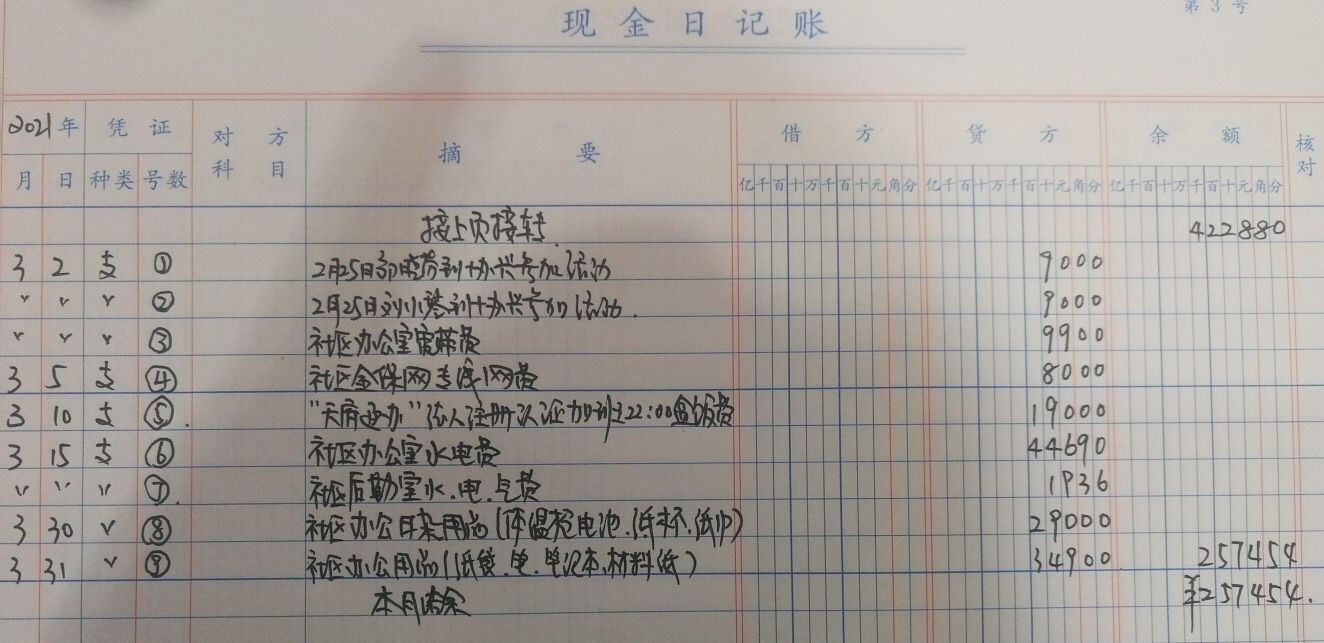 第 3 号
现金日记账
2021年 凭证 对方科目 摘要 借方 贷方 余额 核对
月 日 种类 号数 亿千百十万千百十元角分 亿千百十万千百十元角分 亿千百十万千百十元角分
接上页接转 422880
3 2 支 ① 2月25日 到十办兴参加活动 9000
〃 〃 〃 ② 2月25日刘小 到十办兴参加活动. 9000
〃 〃 〃 ③ 社区办公室宽带费 9900
3 5 支 ④ 社区金保网专线网费 8000
3 10 支 ⑤. "天府通办"法人注册认证加班到22:00盒饭费 19000
3 15 支 ⑥ 社区办公室水电费 44690
〃 〃 〃 ⑦ 社区后勤室水.电.气费 1936
3 30 〃 ⑧ 社区办公日杂用品(体温枪电池.纸杯.纸巾) 29000
3 31 〃 ⑨ 社区办公用品( 笔.笔记本.材料纸) 34900 257454
本月结余 ¥257454.